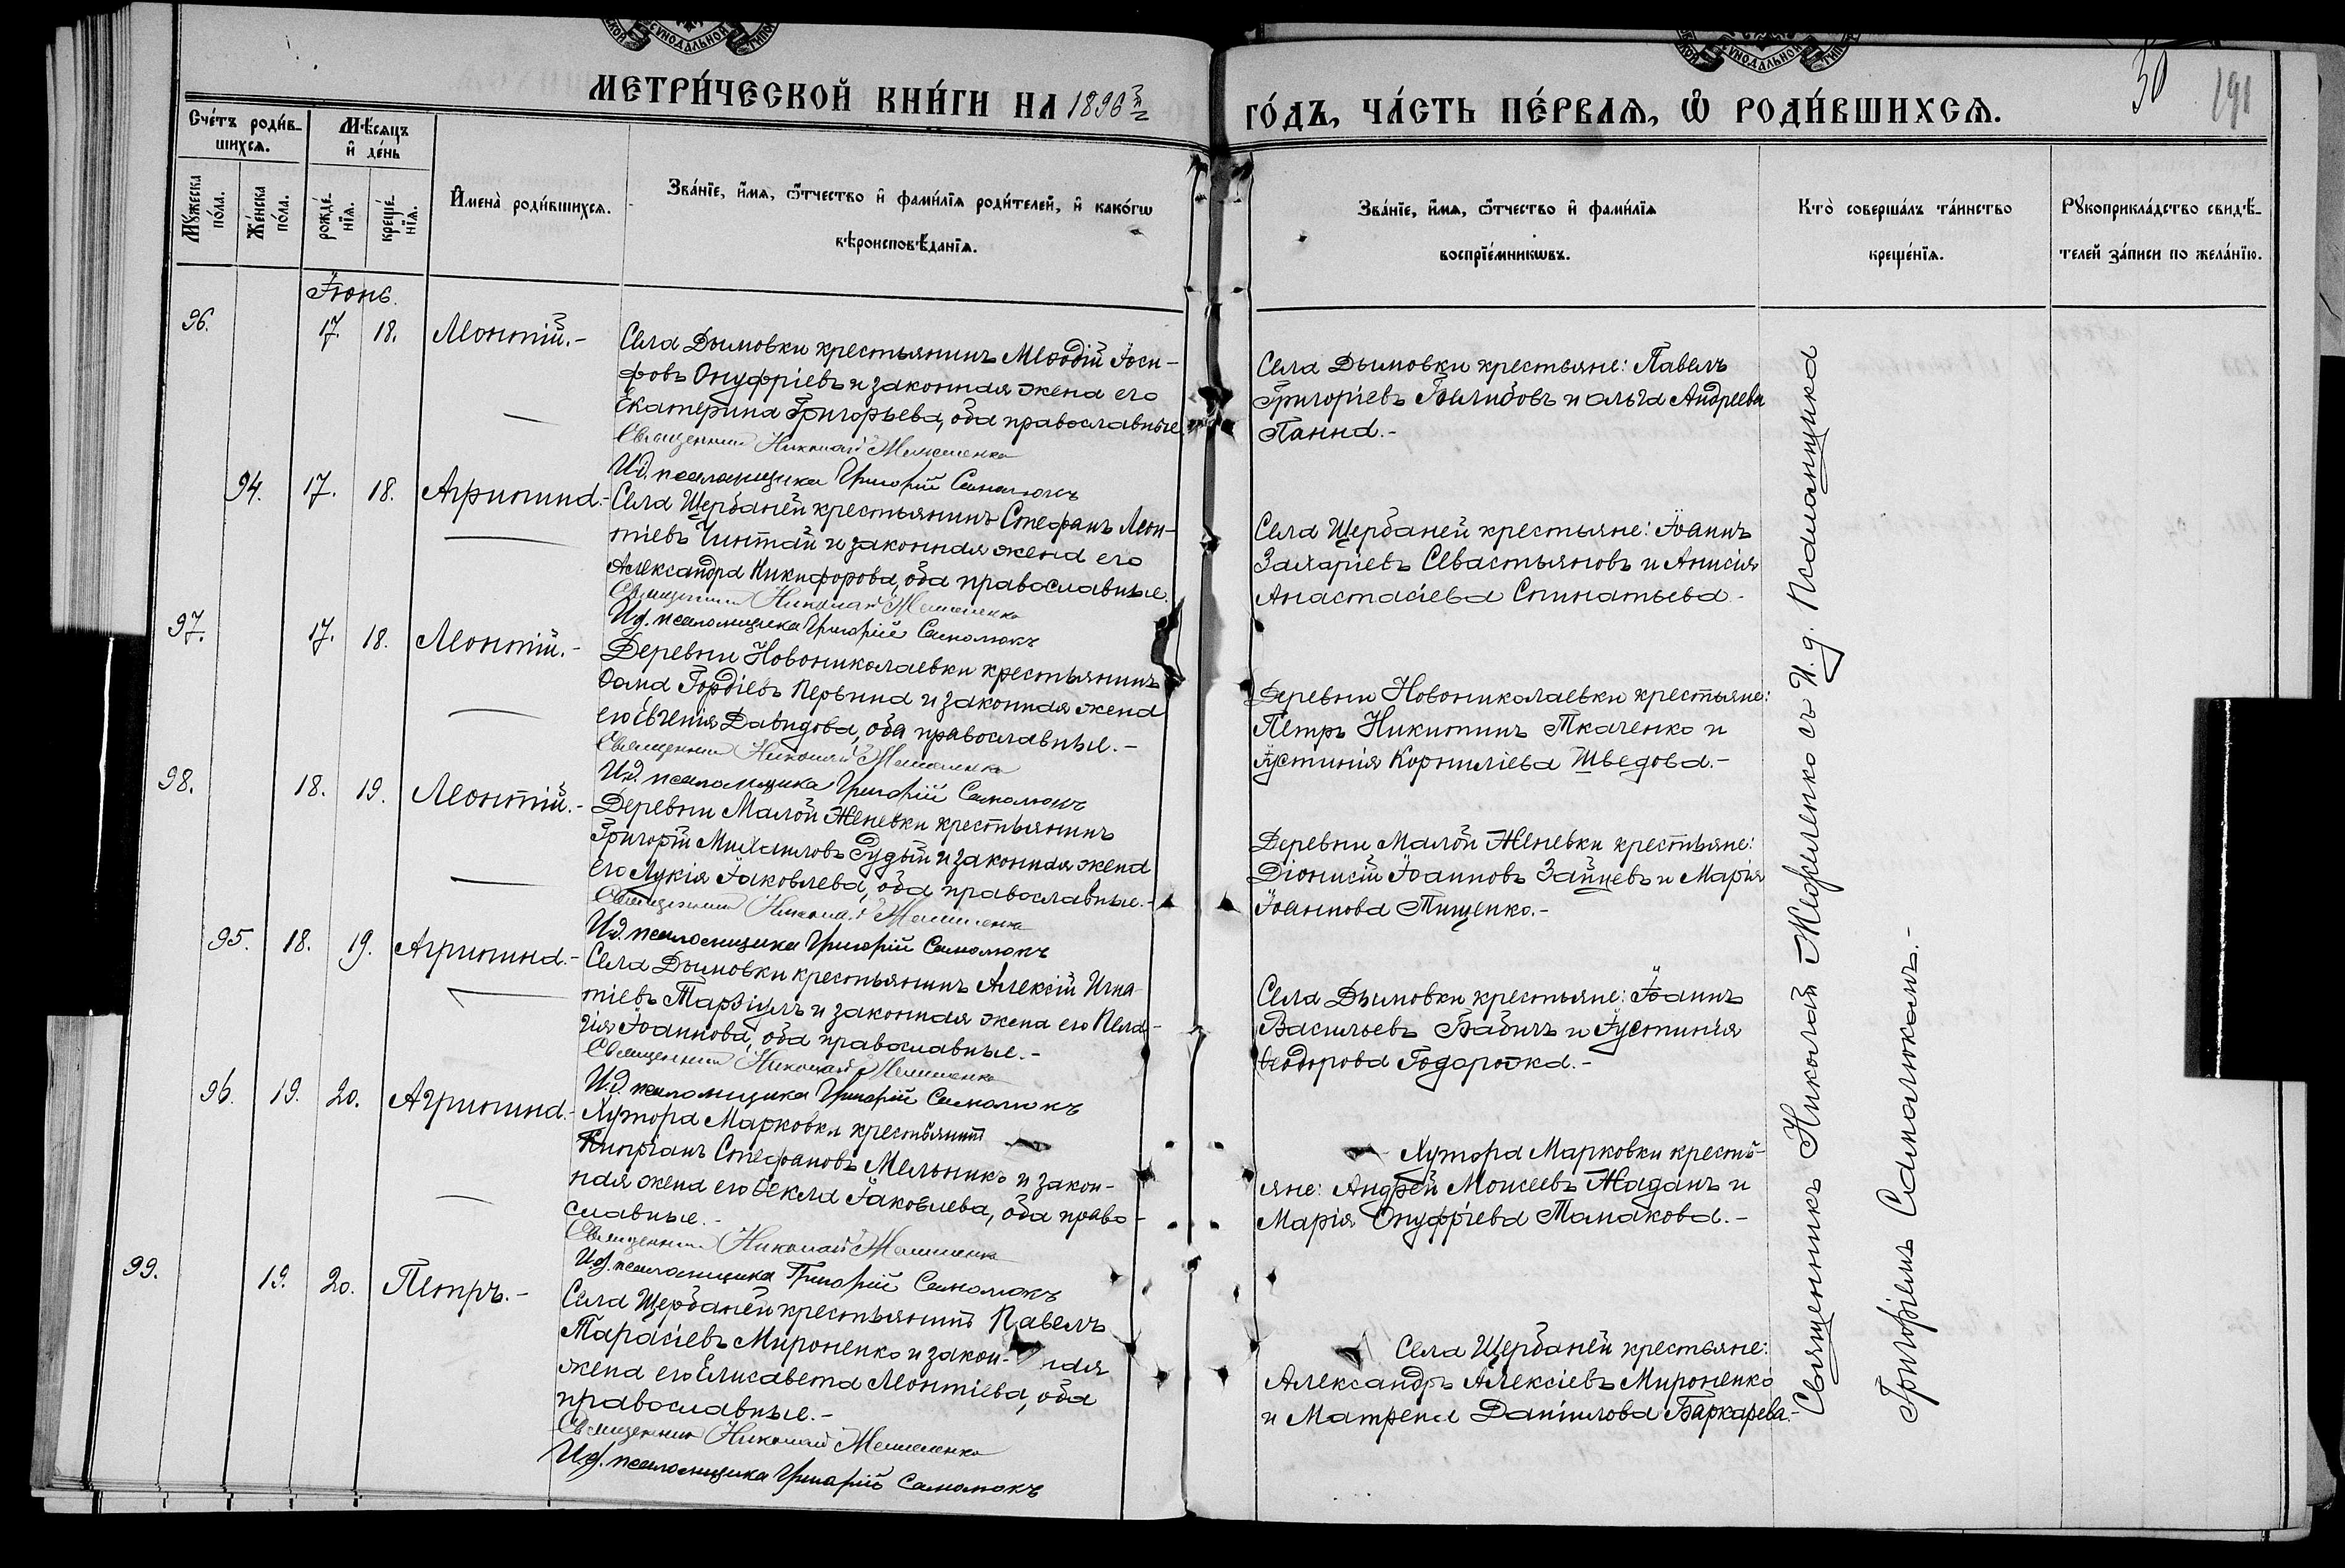 МЕТРИ́ЧЕСКОЙ КНИ́ГИ НА 1896 й
ГО́ДЪ, ЧА́СТЬ ПЕ́РВАѦ, Ѡ҆ РОДИ́ВШИХСѦ.
30 191
Сче́тъ роди́в-
шихсѧ.
Мѣ́сѧцъ
и҆ де́нь
Мꙋ́жеска
по́ла.
Же́нска
по́ла.
рожде́-
нїѧ.
креще́-
нїѧ.
И҆мена̀ роди́вшихсѧ.
Зва́нїе, и҆́мѧ, ѻ҆́тчество и҆ фами́лїѧ роди́телей, и҆ како́гѡ
вѣроисповѣ́данїѧ.
Зва́нїе, и҆́мѧ, ѻ҆́тчество и҆ фами́лїѧ
воспрїе́мникѡвъ.
Кто̀ соверша́лъ та́инство
креще́нїѧ.
Рꙋкоприкла́дство свидѣ́-
телей за́писи по жела́нїю.
Іюнь.
96. 17. 18. Леонтій.-
Села Дымовки крестьянинъ Меѳодій Іоси-
фовъ Онуфріевъ и законная жена его
Екатерина Григорьева, оба православные.
Священникъ Николай
И.д. псаломщика Григорій Самолюкъ
Села Дымовки крестьяне: Павелъ
Григоріевъ и Ольга Андреева
Панна.-
94. 17. 18. Агрипина.-
Села Щербаней крестьянинъ Стефанъ Леон-
тіевъ Чинтай и законная жена его
Александра Никифорова, оба православные.
Священникъ Николай
И.д. псаломщика Григорій Самолюкъ
Села Щербаней крестьяне: Іоаннъ
Захаріевъ Севастьяновъ и Анисія
Анастасіева Спинатьева.-
97. 17. 18. Леонтій.-
Деревни Новониколаевки крестьянинъ
Ѳома Гордіевъ Перьина и законная жена
его Евгенія Давидова, оба православные.-
Священникъ Николай
И.д. псаломщика Григорій Самолюкъ
Деревни Новониколаевки крестьяне:
Петръ Никитинъ Ткаченко и
Іустинія Корниліева Шведова.-
98. 18. 19. Леонтій.-
Деревни Малой Женевки крестьянинъ
Григорій Михаиловъ Рудый и законная жена
его Лукія Іаковлева, оба православные.-
Священникъ Николай
И.д. псаломщика Григорій Самолюкъ
Деревни Малой Женевки крестьяне:
Діонисій Іоанновъ Зайцевъ и Марія
Іоаннова Тищенко.-
95. 18. 19. Агрипина.-
Села Дымовки крестьянинъ Алексій Игна-
тіевъ Тарзіулъ и законная жена его Пела-
гія Іоаннова, оба православные.-
Священникъ Николай
И.д. псаломщика Григорій Самолюкъ
Села Дымовки крестьяне: Іоаннъ
Васильевъ Бабичъ и Іустинія
Ѳеодорова Тодорожа.-
96. 19. 20. Агрипина.-
Хутора Марковки крестьянинъ
Кипріанъ Стефановъ Мельникъ и закон-
ная жена его Ѳекла Іаковлева, оба право-
славные.-
Священникъ Николай
И.д. псаломщика Григорій Самолюкъ
Хутора Марковки кресть-
яне: Андрей Моисеевъ Жаданъ и
Марія Онуфріева Танакова.-
99. 19. 20. Петръ.-
Села Щербаней крестьянинъ Павелъ
Тарасіевъ Мироненко и закон- ная
жена его Елисавета Леонтіева, оба
православные.-
Священникъ Николай
И.д. псаломщика Григорій Самолюкъ
Села Щербаней крестьяне:
Александръ Алексіевъ Мироненко
и Матрена Даніилова Баркарева.-
Священникъ Николай съ И.д. Псаломщика
Григоріемъ Самолюкомъ.-